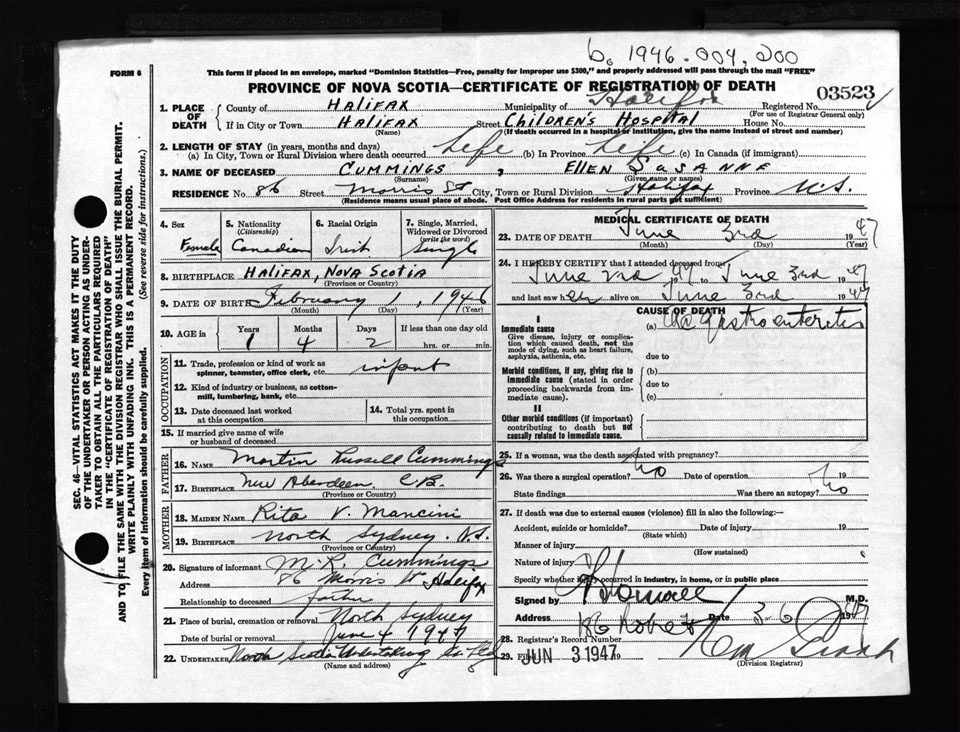 b. 1946.004,200
FORM 6
This form if placed in an envelope, marked "Dominion Statistics—Free, penalty for improper use $300," and properly addressed will pass through the mail "FREE"
PROVINCE OF NOVA SCOTIA—CERTIFICATE OF REGISTRATION OF DEATH
03523
1. PLACE OF DEATH
County of HALIFAX Municipality of Halifax Registered No.
(For use of Registrar General only)
If in City or Town HALIFAX Street CHILDREN'S HOSPITAL House No.
(Name) (If death occurred in a hospital or institution, give the name instead of street and number)
2. LENGTH OF STAY (in years, months and days)
(a) In City, Town or Rural Division where death occurred Life (b) In Province Life (c) In Canada (if immigrant)
3. NAME OF DECEASED CUMMINGS, ELLEN SUSANNE
(Surname) (Given name or names)
RESIDENCE No. 86 Street Morris St City, Town or Rural Division Halifax Province N.S.
(Residence means usual place of abode. Post Office Address for residents in rural parts not sufficient)
4. Sex
Female
5. Nationality
(Citizenship)
Canadian
6. Racial Origin
Irish
7. Single, Married,
Widowed or Divorced
(write the word)
Single
8. BIRTHPLACE HALIFAX, NOVA SCOTIA
(Province or Country)
9. DATE OF BIRTH February 1, 1946
(Month) (Day) (Year)
10. AGE in Years Months Days If less than one day old
1 4 2 hrs. or min.
OCCUPATION
11. Trade, profession or kind of work as
spinner, teamster, office clerk, etc. infant
12. Kind of industry or business, as cotton-
mill, lumbering, bank, etc.
13. Date deceased last worked
at this occupation
14. Total yrs. spent in
this occupation
15. If married give name of wife
or husband of deceased
FATHER
16. NAME Martin Russell Cummings
17. BIRTHPLACE New Aberdeen C.B.
(Province or Country)
MOTHER
18. MAIDEN NAME Rita V. Mancini
19. BIRTHPLACE North Sydney. N.S.
(Province or Country)
20. Signature of informant M. R. Cummings
Address 86 Morris St Halifax
Relationship to deceased father
21. Place of burial, cremation or removal North Sydney
Date of burial or removal June 4 1947
22. UNDERTAKER Nova Scotia Undertaking Co. Ltd
(Name and address)
MEDICAL CERTIFICATE OF DEATH
23. DATE OF DEATH June 3rd 1947
(Month) (Day) (Year)
24. I HEREBY CERTIFY that I attended deceased from
June 2nd 1947 to June 3rd 1947
and last saw her alive on June 3rd 1947
CAUSE OF DEATH
I
Immediate cause
Give disease, injury or complica-
tion which caused death, not the
mode of dying, such as heart failure,
asphyxia, asthenia, etc.
(a) gastroenteritis
due to
Morbid conditions, if any, giving rise to
immediate cause (stated in order
proceeding backwards from im-
mediate cause).
(b)
due to
(c)
II
Other morbid conditions (if important)
contributing to death but not
causally related to immediate cause.
25. If a woman, was the death associated with pregnancy?
26. Was there a surgical operation? no Date of operation 19
State findings Was there an autopsy? no
27. If death was due to external causes (violence) fill in also the following:—
Accident, suicide or homicide? Date of injury 19
(State which)
Manner of injury
(How sustained)
Nature of injury
Specify whether injury occurred in industry, in home, or in public place
Signed by M.D.
Address 86 Date 3-6 1947
28. Registrar's Record Number
29. Filed JUN 3 1947 19
(Division Registrar)
SEC. 46—VITAL STATISTICS ACT MAKES IT THE DUTY
OF THE UNDERTAKER OR PERSON ACTING AS UNDER-
TAKER TO OBTAIN ALL THE PARTICULARS REQUIRED
IN THE "CERTIFICATE OF REGISTRATION OF DEATH"
AND TO FILE THE SAME WITH THE DIVISION REGISTRAR WHO SHALL ISSUE THE BURIAL PERMIT.
WRITE PLAINLY WITH UNFADING INK. THIS IS A PERMANENT RECORD.
Every item of information should be carefully supplied. (See reverse side for instructions.)